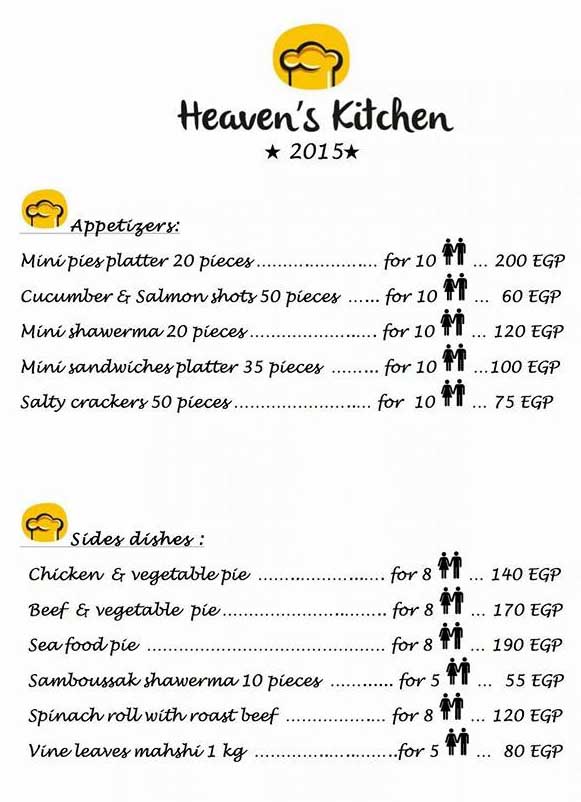 Heaven's Kitchen
★ 2015★
Appetizers:
Mini pies platter 20 pieces...................... for 10 ... 200 EGP
Cucumber & Salmon shots 50 pieces ...... for 10 ... 60 EGP
Mini shawerma 20 pieces....................... for 10 ... 120 EGP
Mini sandwiches platter 35 pieces ......... for 10 ...100 EGP
Salty crackers 50 pieces......................... for 10 ... 75 EGP
Sides dishes :
Chicken & vegetable pie ....................... for 8 ... 140 EGP
Beef & vegetable pie.............................. for 8 ... 170 EGP
Sea food pie ........................................... for 8 ... 190 EGP
Samboussak shawerma 10 pieces ............ for 5 ... 55 EGP
Spinach roll with roast beef .................. for 8 ... 120 EGP
Vine leaves mahshi 1 kg ..........................for 5 ... 80 EGP